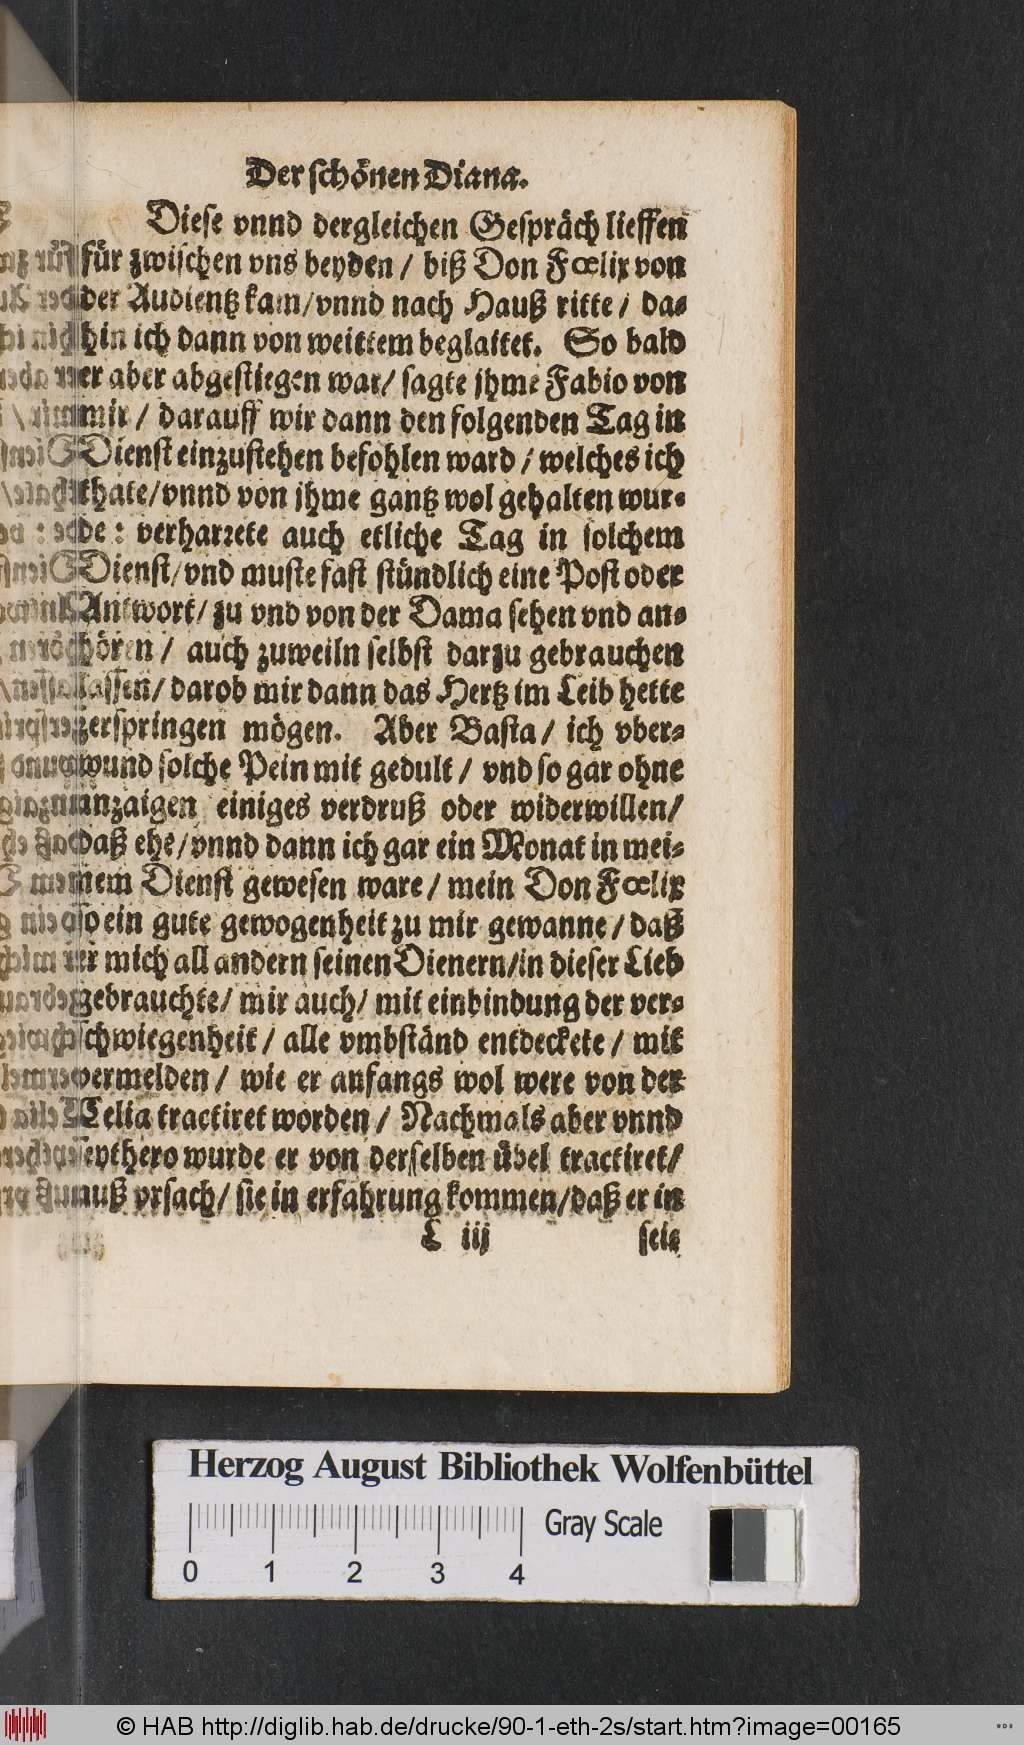 Der schönen Diana.
Diese vnnd dergleichen Gespräch lieffen
für zwischen vns beyden / biß Don Fœlix von
der Audientz kam/vnnd nach Hauß ritte / da-
hin ich dann von weittem beglaitet. So bald
er aber abgestiegen war/ sagte jhme Fabio von
mir / darauff wir dann den folgenden Tag in
Dienst einzustehen befohlen ward / welches ich
thate/vnnd von jhme gantz wol gehalten wur-
de : verharrete auch etliche Tag in solchem
Dienst/vnd muste fast stündlich eine Post oder
Antwort/ zu vnd von der Dama sehen vnd an-
hören / auch zuweiln selbst darzu gebrauchen
lassen/ darob mir dann das Hertz im Leib hette
zerspringen mögen. Aber Basta/ ich vber-
wund solche Pein mit gedult / vnd so gar ohne
anzaigen einiges verdruß oder widerwillen/
daß ehe/vnnd dann ich gar ein Monat in mei-
nem Dienst gewesen ware / mein Don Fœlix
so ein gute gewogenheit zu mir gewanne / daß
er mich all andern seinen Dienern/in dieser Lieb
gebrauchte/ mir auch/ mit einbindung der ver-
schwiegenheit / alle vmbständ entdeckete / mit
vermelden / wie er anfangs wol were von der
Celia tractiret worden / Nachmals aber vnnd
seythero wurde er von derselben übel tractiret/
auß vrsach/ sie in erfahrung kommen/daß er in
L iij sei-
Herzog August Bibliothek Wolfenbüttel
Gray Scale
0 1 2 3 4
© HAB http://diglib.hab.de/drucke/90-1-eth-2s/start.htm?image=00165